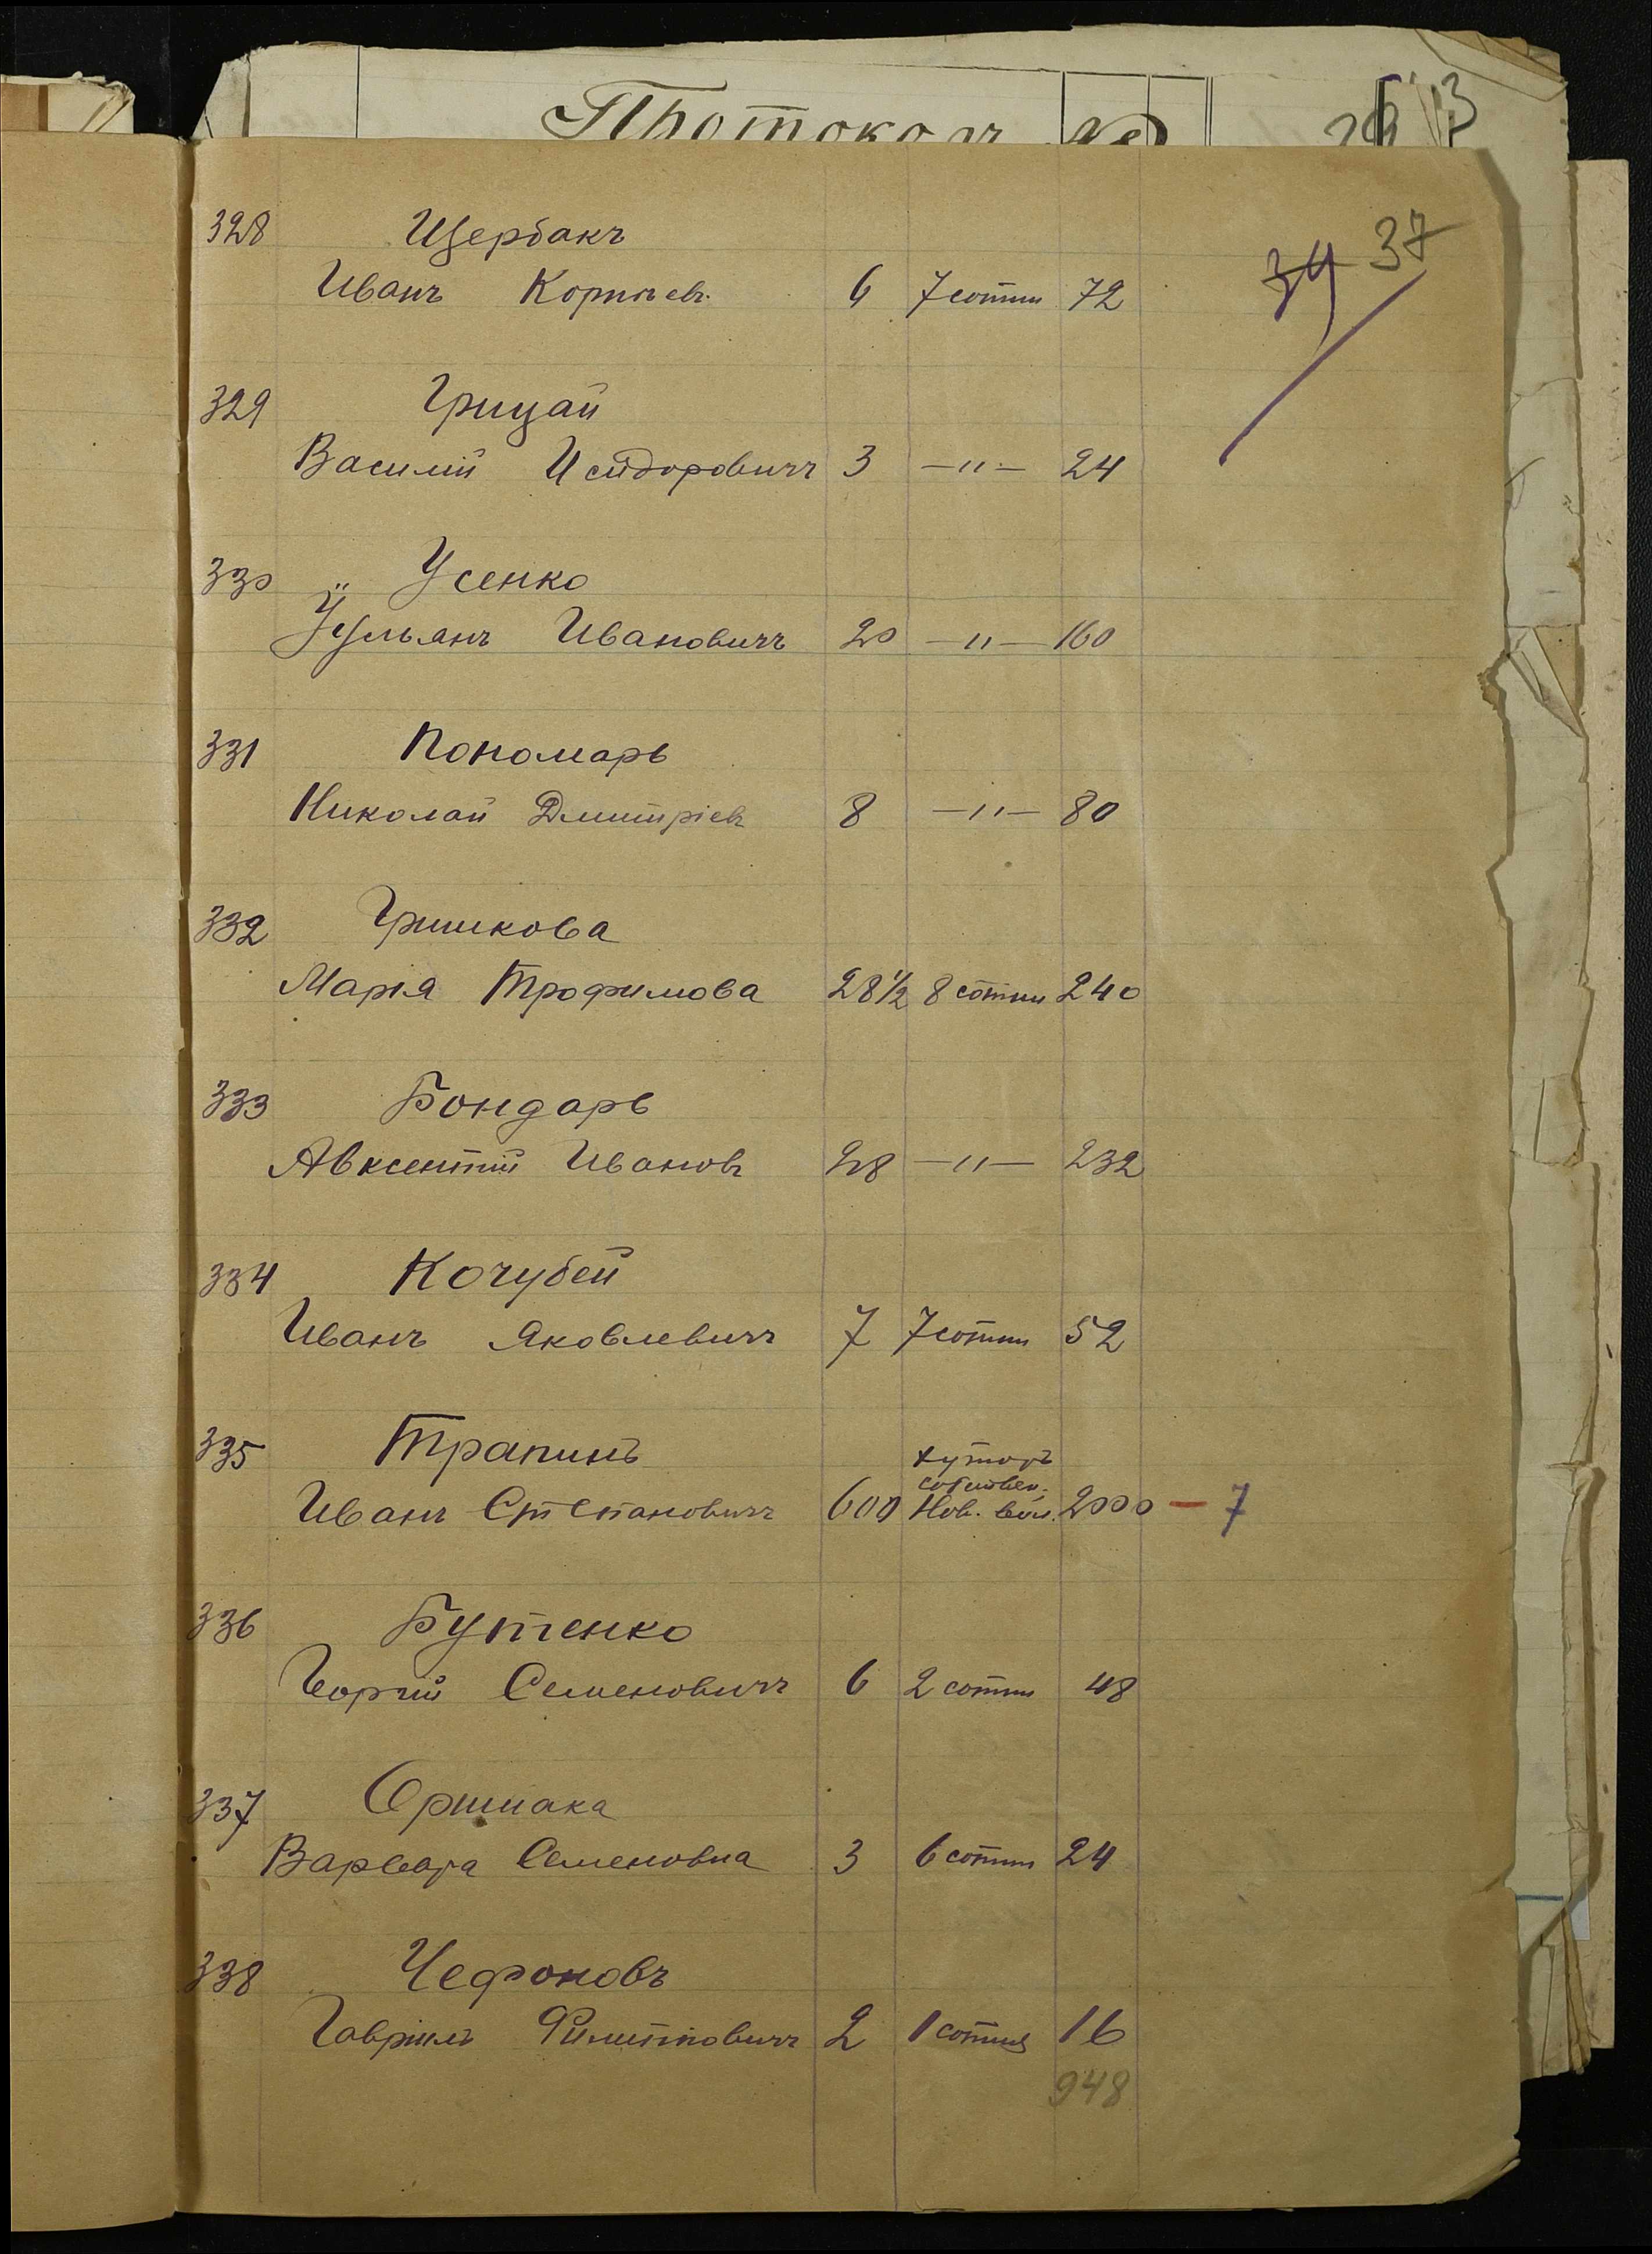 Протоколъ №
37
34
328 Щербакъ
Иванъ Корнѣев. 6 7 сотни 72
329 Грицай
Василій Исидоровичъ 3 —"— 24
330 Усенко
Ульянъ Ивановичъ 20 —"— 160
331 Пономарь
Николай Дмитріев 8 —"— 80
332 Гришкова
Марія Трофимова 28 1/2 8 сотни 240
333 Бондарь
Авксентій Иванов 28 —"— 232
334 Кочубей
Иванъ Яковлевичъ 7 7 сотни 52
335 Трапинъ хуторъ
собствен.
Иванъ Степановичъ 600 Нов. вол. 2000 — 7
336 Бутенко
Георгій Семеновичъ 6 2 сотни 48
337 Оришака
Варвара Семеновна 3 6 сотни 24
338 Чефоновъ
Гавріилъ Филипповичъ 2 1 сотня 16
948